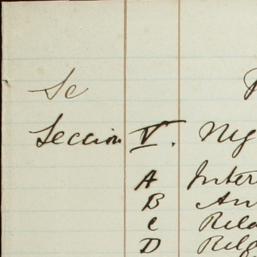 Sc
Section V.
A Inter
B An
C Rela
D Relg